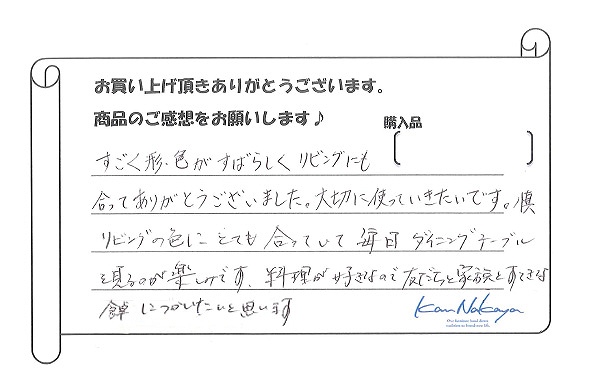 お買い上げ頂きありがとうございます。
商品のご感想をお願いします♪
購入品
すごく形、色がすばらしくリビングにも
合ってありがとうございました。大切に使っていきたいです。僕
リビングの色にとても合っていて毎日ダイニングテーブル
を見るのが楽しみです、料理が好きなので友だちと家族とすてきな
食卓につかいたいと思います
Kan Nakaya